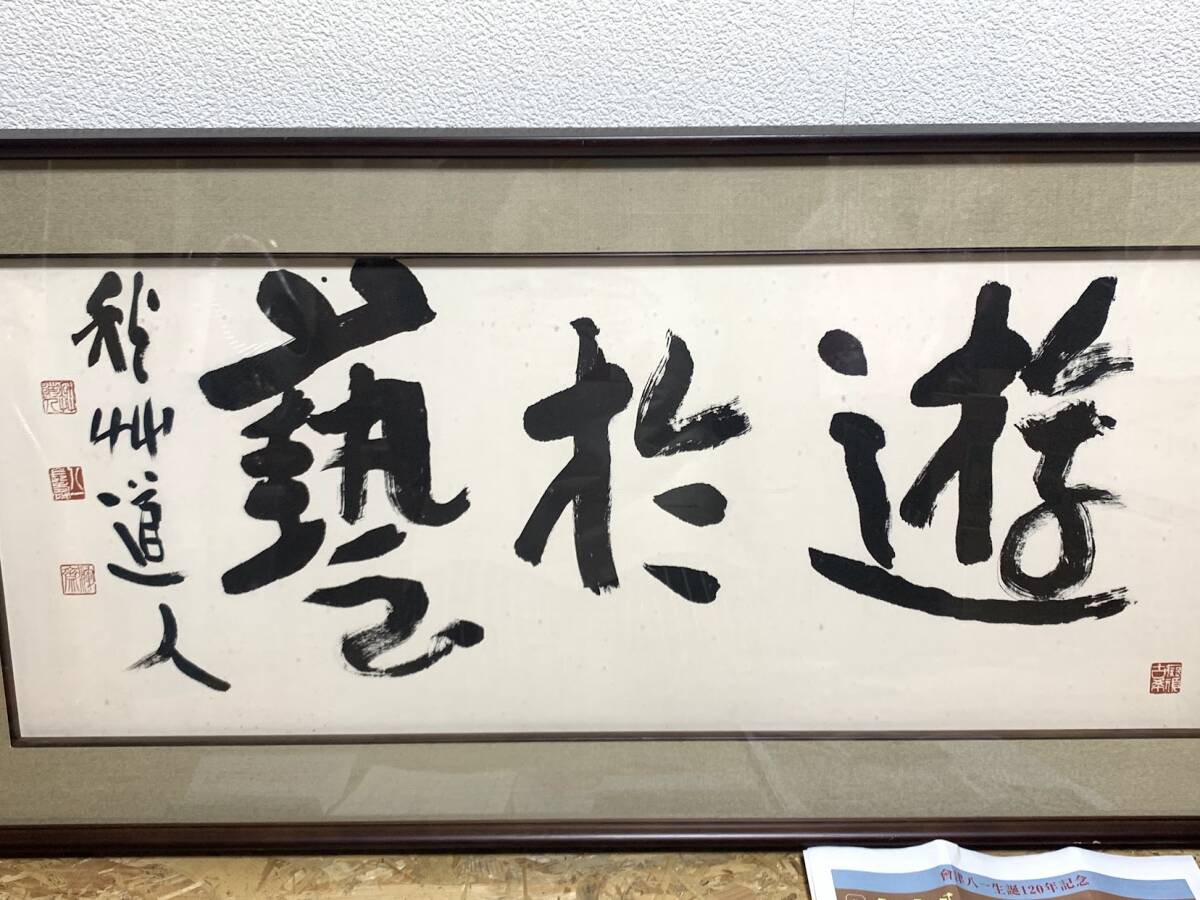 遊於藝
秋艸道人
會津八一生誕120年記念